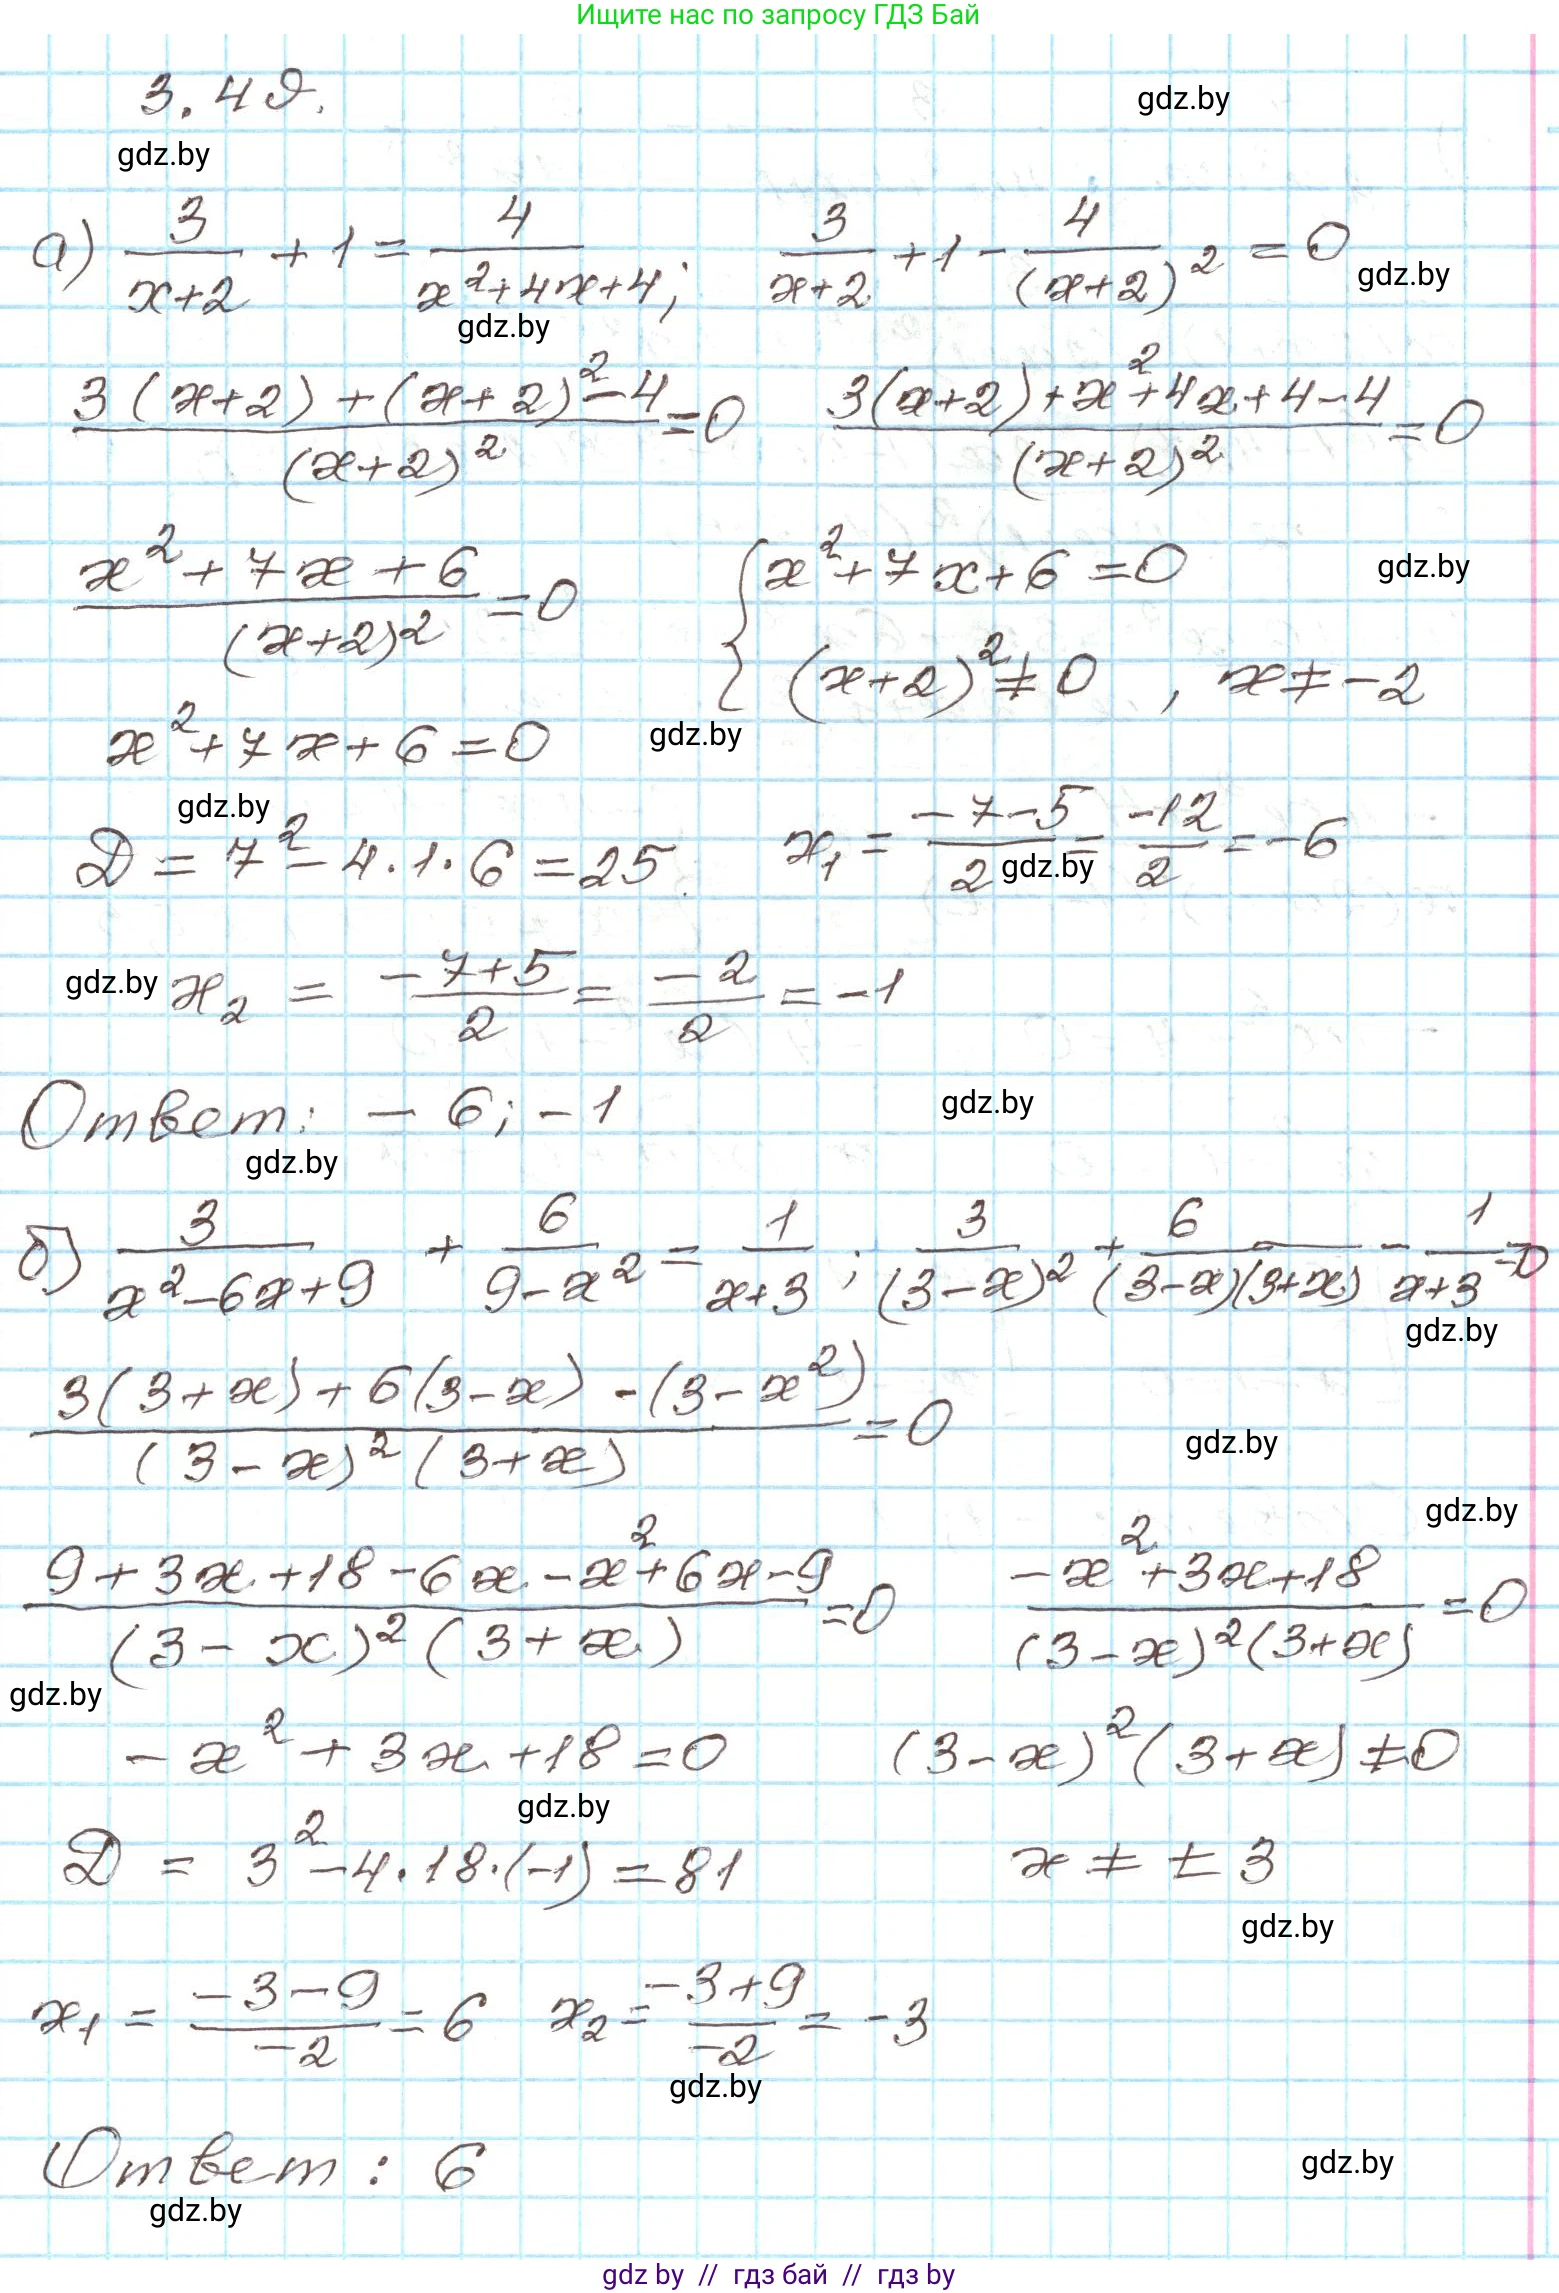 Ищите нас по запросу ГДЗ Бай
3.49.
gdz.by
gdz.by
а) 3/(x+2) + 1 = 4/(x²+4x+4); 3/(x+2) + 1 - 4/(x+2)² = 0
gdz.by
gdz.by
(3(x+2)+(x+2)²-4)/(x+2)² = 0 (3(x+2)+x²+4x+4-4)/(x+2)² = 0
(x²+7x+6)/(x+2)² = 0 { x²+7x+6=0
gdz.by
(x+2)²≠0 , x≠-2
x²+7x+6=0
gdz.by
gdz.by
D = 7²-4·1·6=25. x₁ = (-7-5)/2 = -12/2 = -6
gdz.by
gdz.by
x₂ = (-7+5)/2 = -2/2 = -1
Ответ: -6; -1
gdz.by
gdz.by
б) 3/(x²-6x+9) + 6/(9-x²) = 1/(x+3); 3/(3-x)² + 6/((3-x)(3+x)) - 1/(x+3) = 0
gdz.by
(3(3+x)+6(3-x)-(3-x²))/((3-x)²(3+x)) = 0
gdz.by
gdz.by
(9+3x+18-6x-x²+6x-9)/((3-x)²(3+x)) = 0 (-x²+3x+18)/((3-x)²(3+x)) = 0
gdz.by
-x²+3x+18=0 (3-x)²(3+x)≠0
gdz.by
D = 3²-4·18·(-1)=81 x ≠ ±3
gdz.by
x₁ = (-3-9)/-2 = 6 x₂ = (-3+9)/-2 = -3
gdz.by
Ответ: 6
gdz.by
gdz.by
gdz by // гдз бай // гдз by